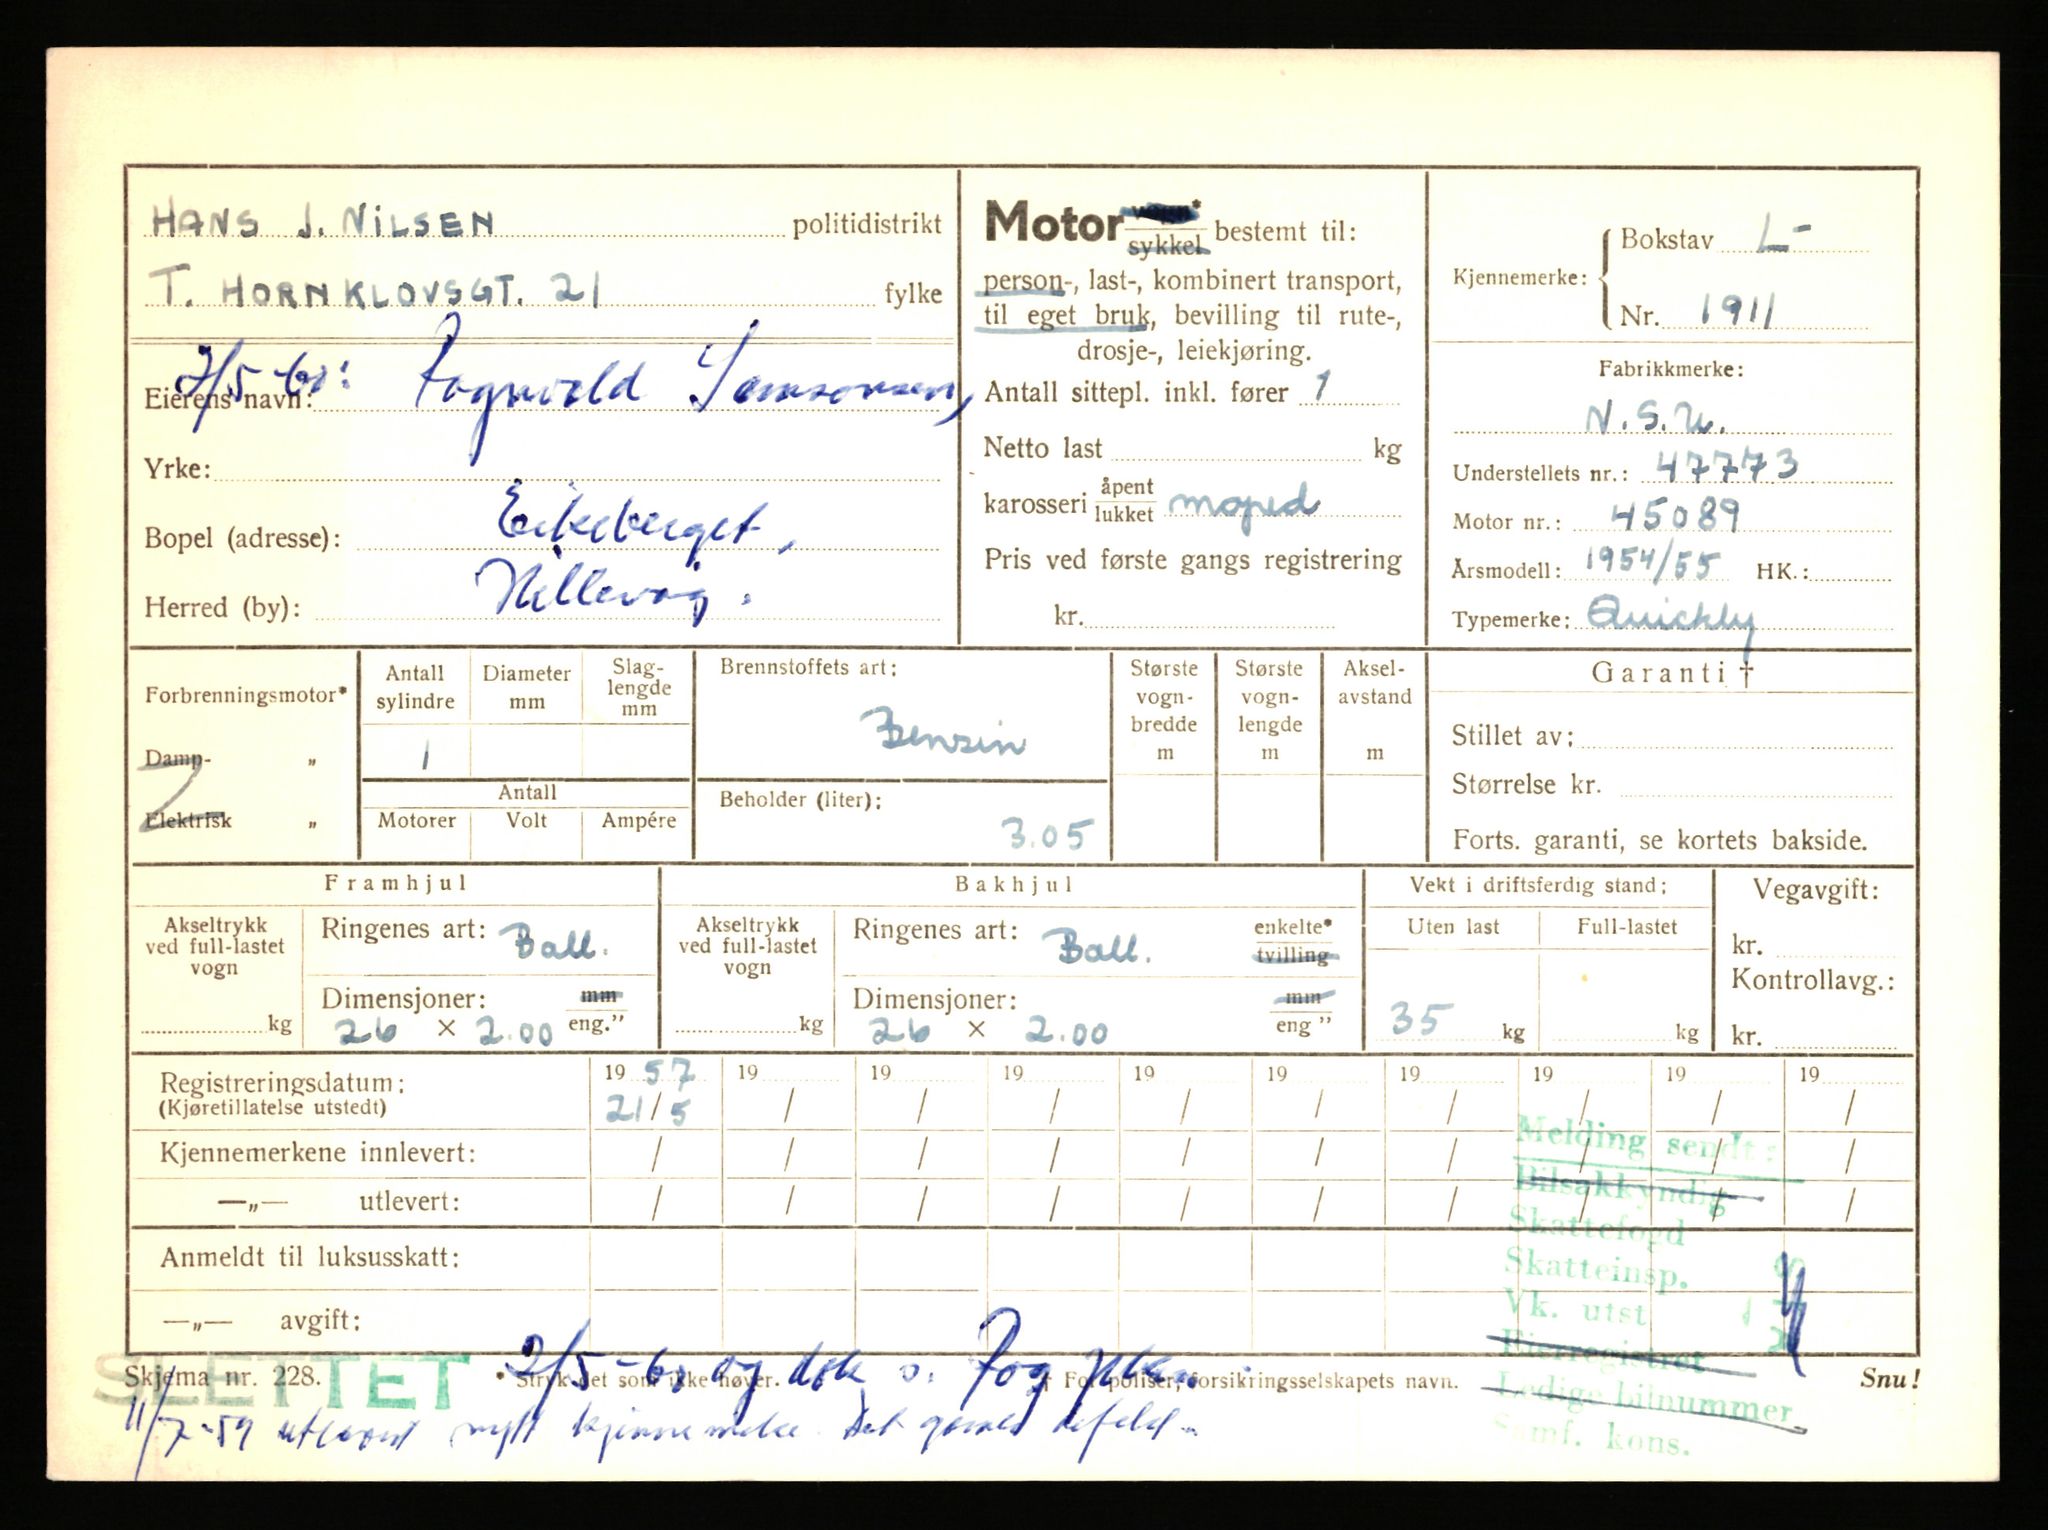 HANS J. NILSEN politidistrikt
T. HORNKLOVSGT. 21 fylke
2/5-60: Ragnvald Samsonsen,
Eierens navn:
Yrke:
Bopel (adresse): Eikeberget,
Herred (by): Hillevåg.
Motor vogn* sykkel bestemt til:
person-, last-, kombinert transport,
til eget bruk, bevilling til rute-,
drosje-, leiekjøring.
Antall sittepl. inkl. fører 1
Netto last kg
karosseri åpent lukket moped
Pris ved første gangs registrering
kr.
Kjennemerke: Bokstav L-
Nr. 1911
Fabrikkmerke:
N.S.U.
Understellets nr.: 47773
Motor nr.: 45089
Årsmodell: 1954/55 HK.:
Typemerke: Quickly
Forbrenningsmotor*
Damp- „
Elektrisk „
Antall sylindre
Diameter mm
Slag-lengde mm
1
Antall
Motorer Volt Ampére
Brennstoffets art:
Bensin
Beholder (liter):
3.05
Største vogn-bredde m
Største vogn-lengde m
Aksel-avstand m
Garanti †
Stillet av:
Størrelse kr.
Forts. garanti, se kortets bakside.
Framhjul
Akseltrykk ved full-lastet vogn
kg
Ringenes art: Ball.
Dimensjoner: mm
26 × 2.00 eng."
Bakhjul
Akseltrykk ved full-lastet vogn
kg
Ringenes art: Ball. enkelte* tvilling
Dimensjoner: mm
26 × 2.00 eng "
Vekt i driftsferdig stand:
Uten last Full-lastet
35 kg kg
Vegavgift:
kr.
Kontrollavg.:
kr.
Registreringsdatum: 19 57 19 19 19 19 19 19 19 19 19
(Kjøretillatelse utstedt) 21/5 / / / / / / / / /
Kjennemerkene innlevert: / / / / / / / / / /
—„— utlevert: / / / / / / / / / /
Anmeldt til luksusskatt:
—„— avgift:
Melding sendt:
Bilsakkyndig
Skattefogd
Skatteinsp.
Vk. utst
Eierregistret
Ledige bilnummer
Samf. kons.
SLETTET
Skjema nr. 228. * Stryk det som ikke høver. † For poliser, forsikringsselskapets navn. Snu!
2/5-60 og dok
11/7-59 utlevert nytt kjennemerke. Det gamle